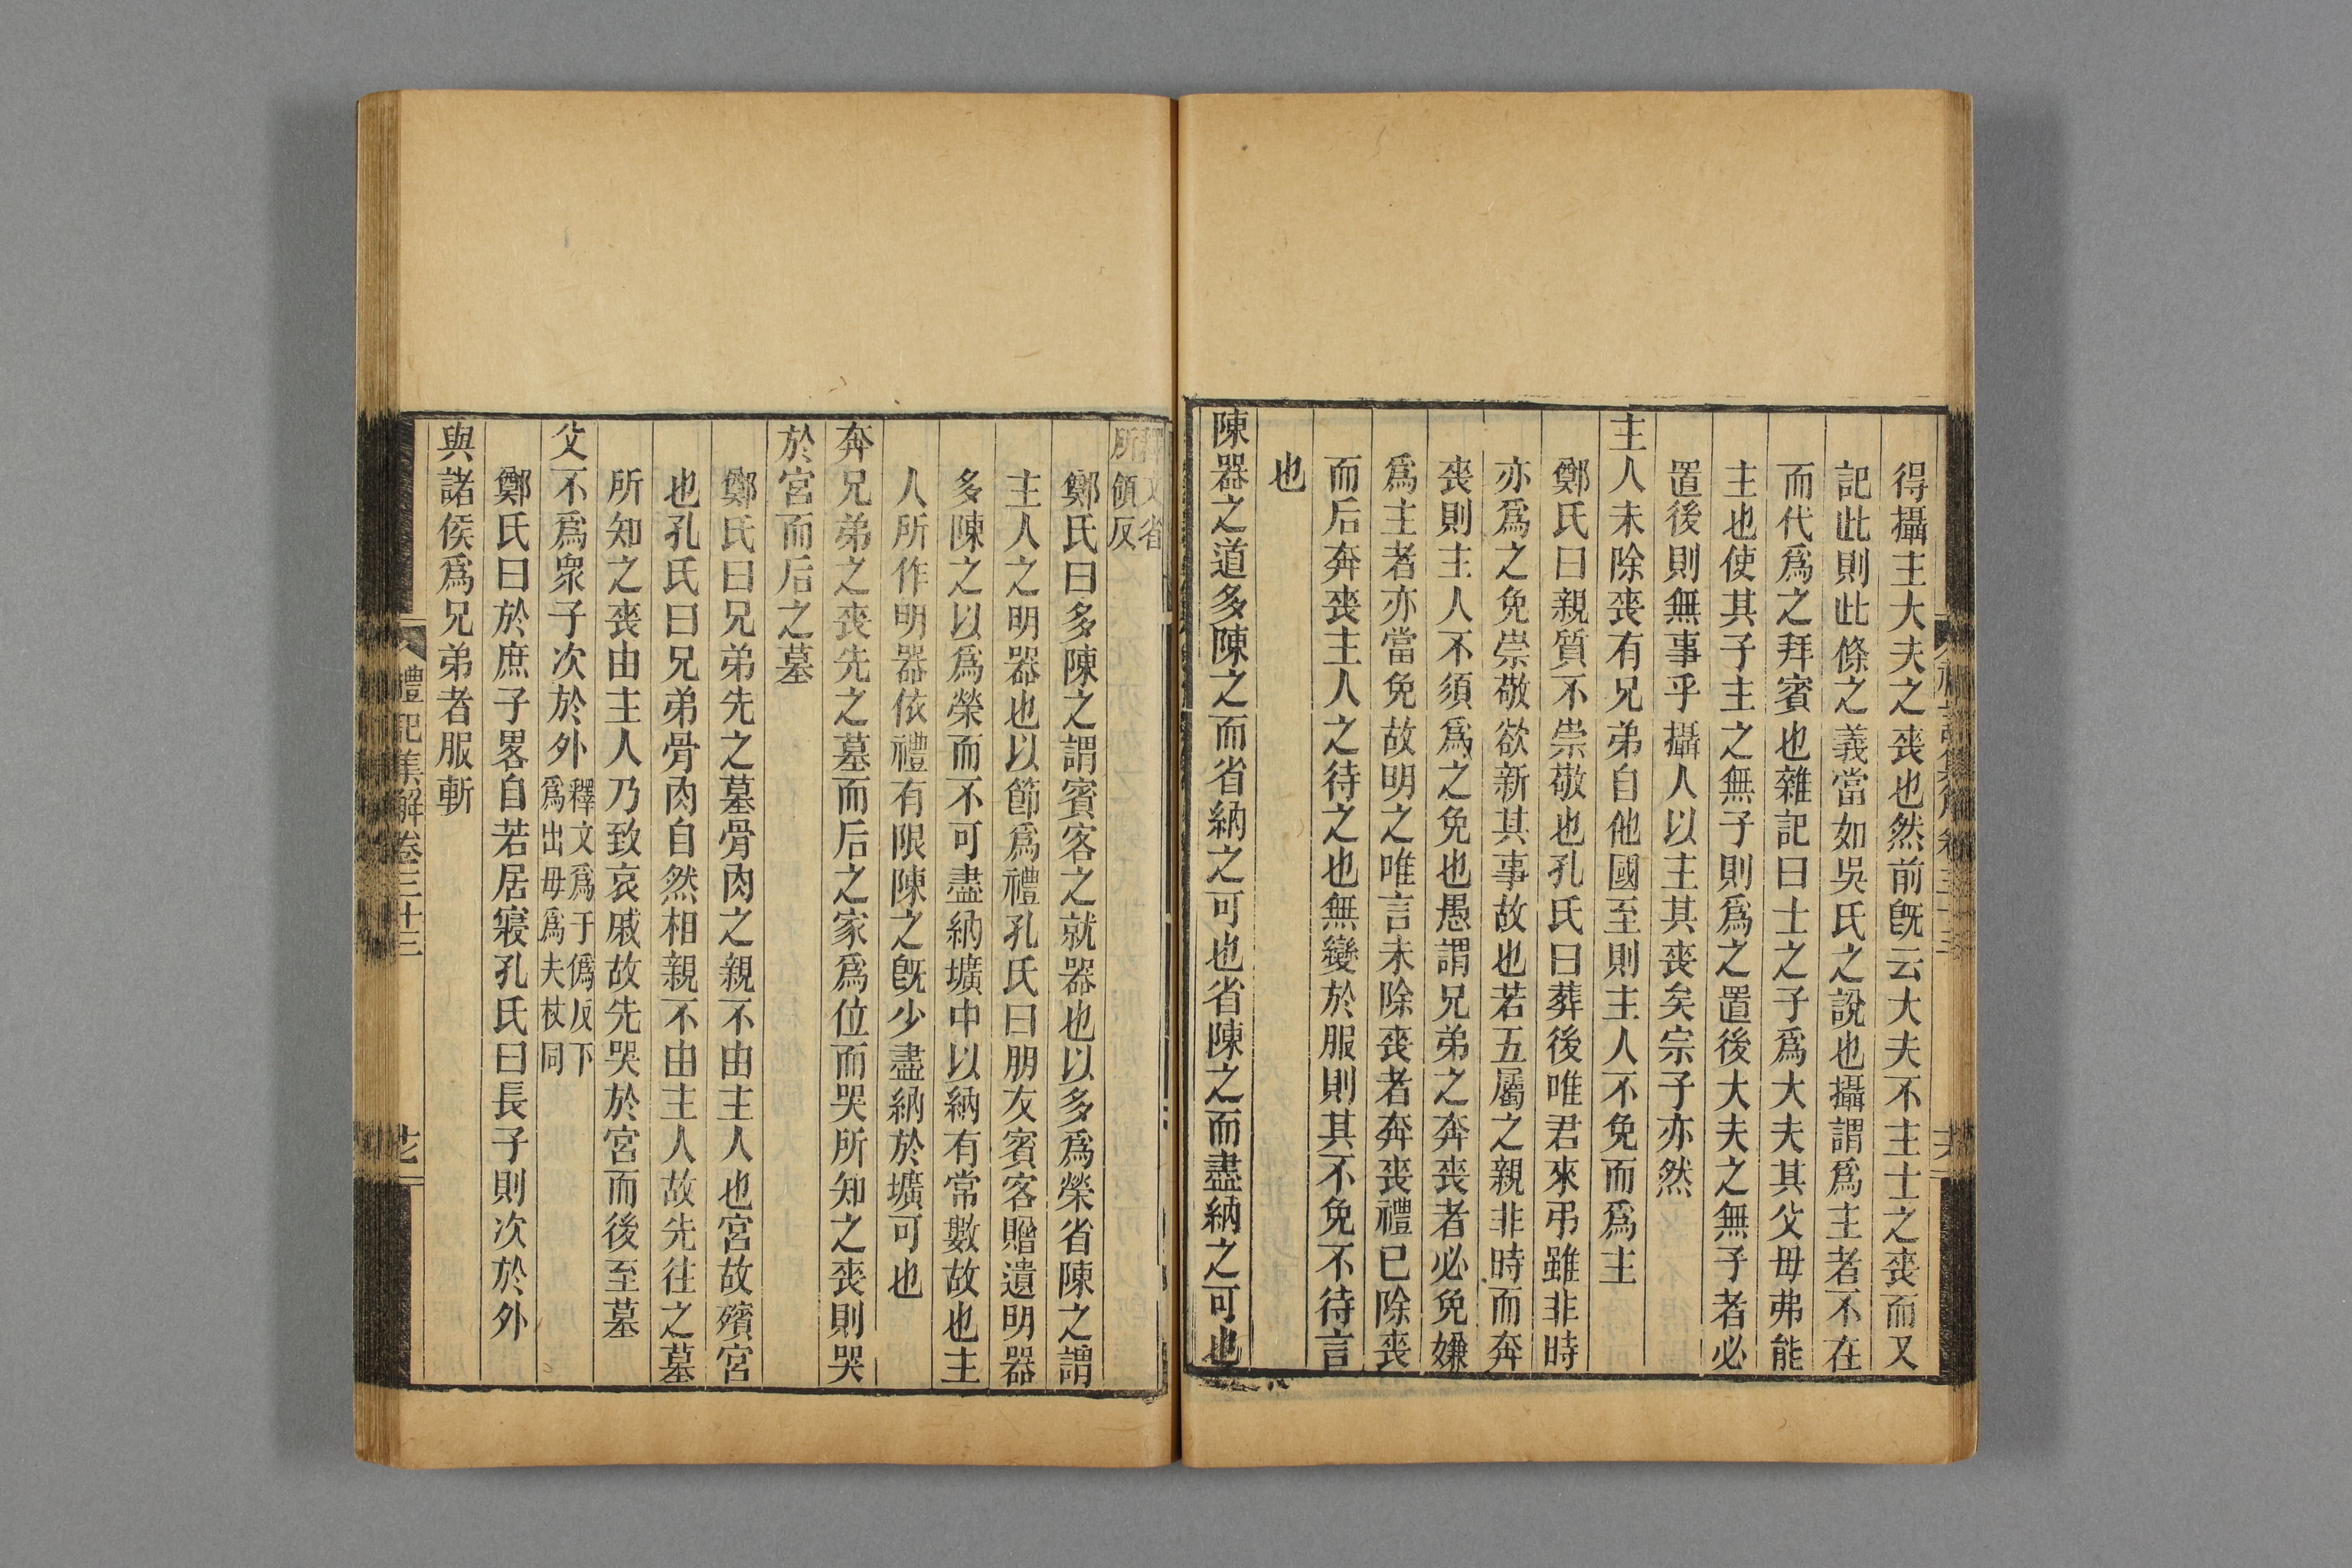 得攝主大夫之喪也然前旣云大夫不主士之喪而又
記此則此條之義當如吳氏之說也攝謂爲主者不在
而代爲之拜賓也雜記曰士之子爲大夫其父母弗能
主也使其子主之無子則爲之置後大夫之無子者必
置後則無事乎攝人以主其喪矣宗子亦然
主人未除喪有兄弟自他國至則主人不免而爲主
鄭氏曰親質不崇敬也孔氏曰葬後唯君來弔雖非時
亦爲之免崇敬欲新其事故也若五屬之親非時而奔
喪則主人不須爲之免也愚謂兄弟之奔喪者必免嫌
爲主者亦當免故明之唯言未除喪者奔喪禮已除喪
而后奔喪主人之待之也無變於服則其不免不待言
也
陳器之道多陳之而省納之可也省陳之而盡納之可也
釋文省
所領反
鄭氏曰多陳之謂賓客之就器也以多爲榮省陳之謂
主人之明器也以節爲禮孔氏曰朋友賓客贈遺明器
多陳之以爲榮而不可盡納壙中以納有常數故也主
人所作明器依禮有限陳之旣少盡納於壙可也
奔兄弟之喪先之墓而后之家爲位而哭所知之喪則哭
於宮而后之墓
鄭氏曰兄弟先之墓骨肉之親不由主人也宮故殯宮
也孔氏曰兄弟骨肉自然相親不由主人故先往之墓
所知之喪由主人乃致哀戚故先哭於宮而後至墓
父不爲衆子次於外釋文爲于僞反下爲出母爲夫杖同
鄭氏曰於庶子畧自若居寢孔氏曰長子則次於外
與諸侯爲兄弟者服斬
禮記集解卷三十三